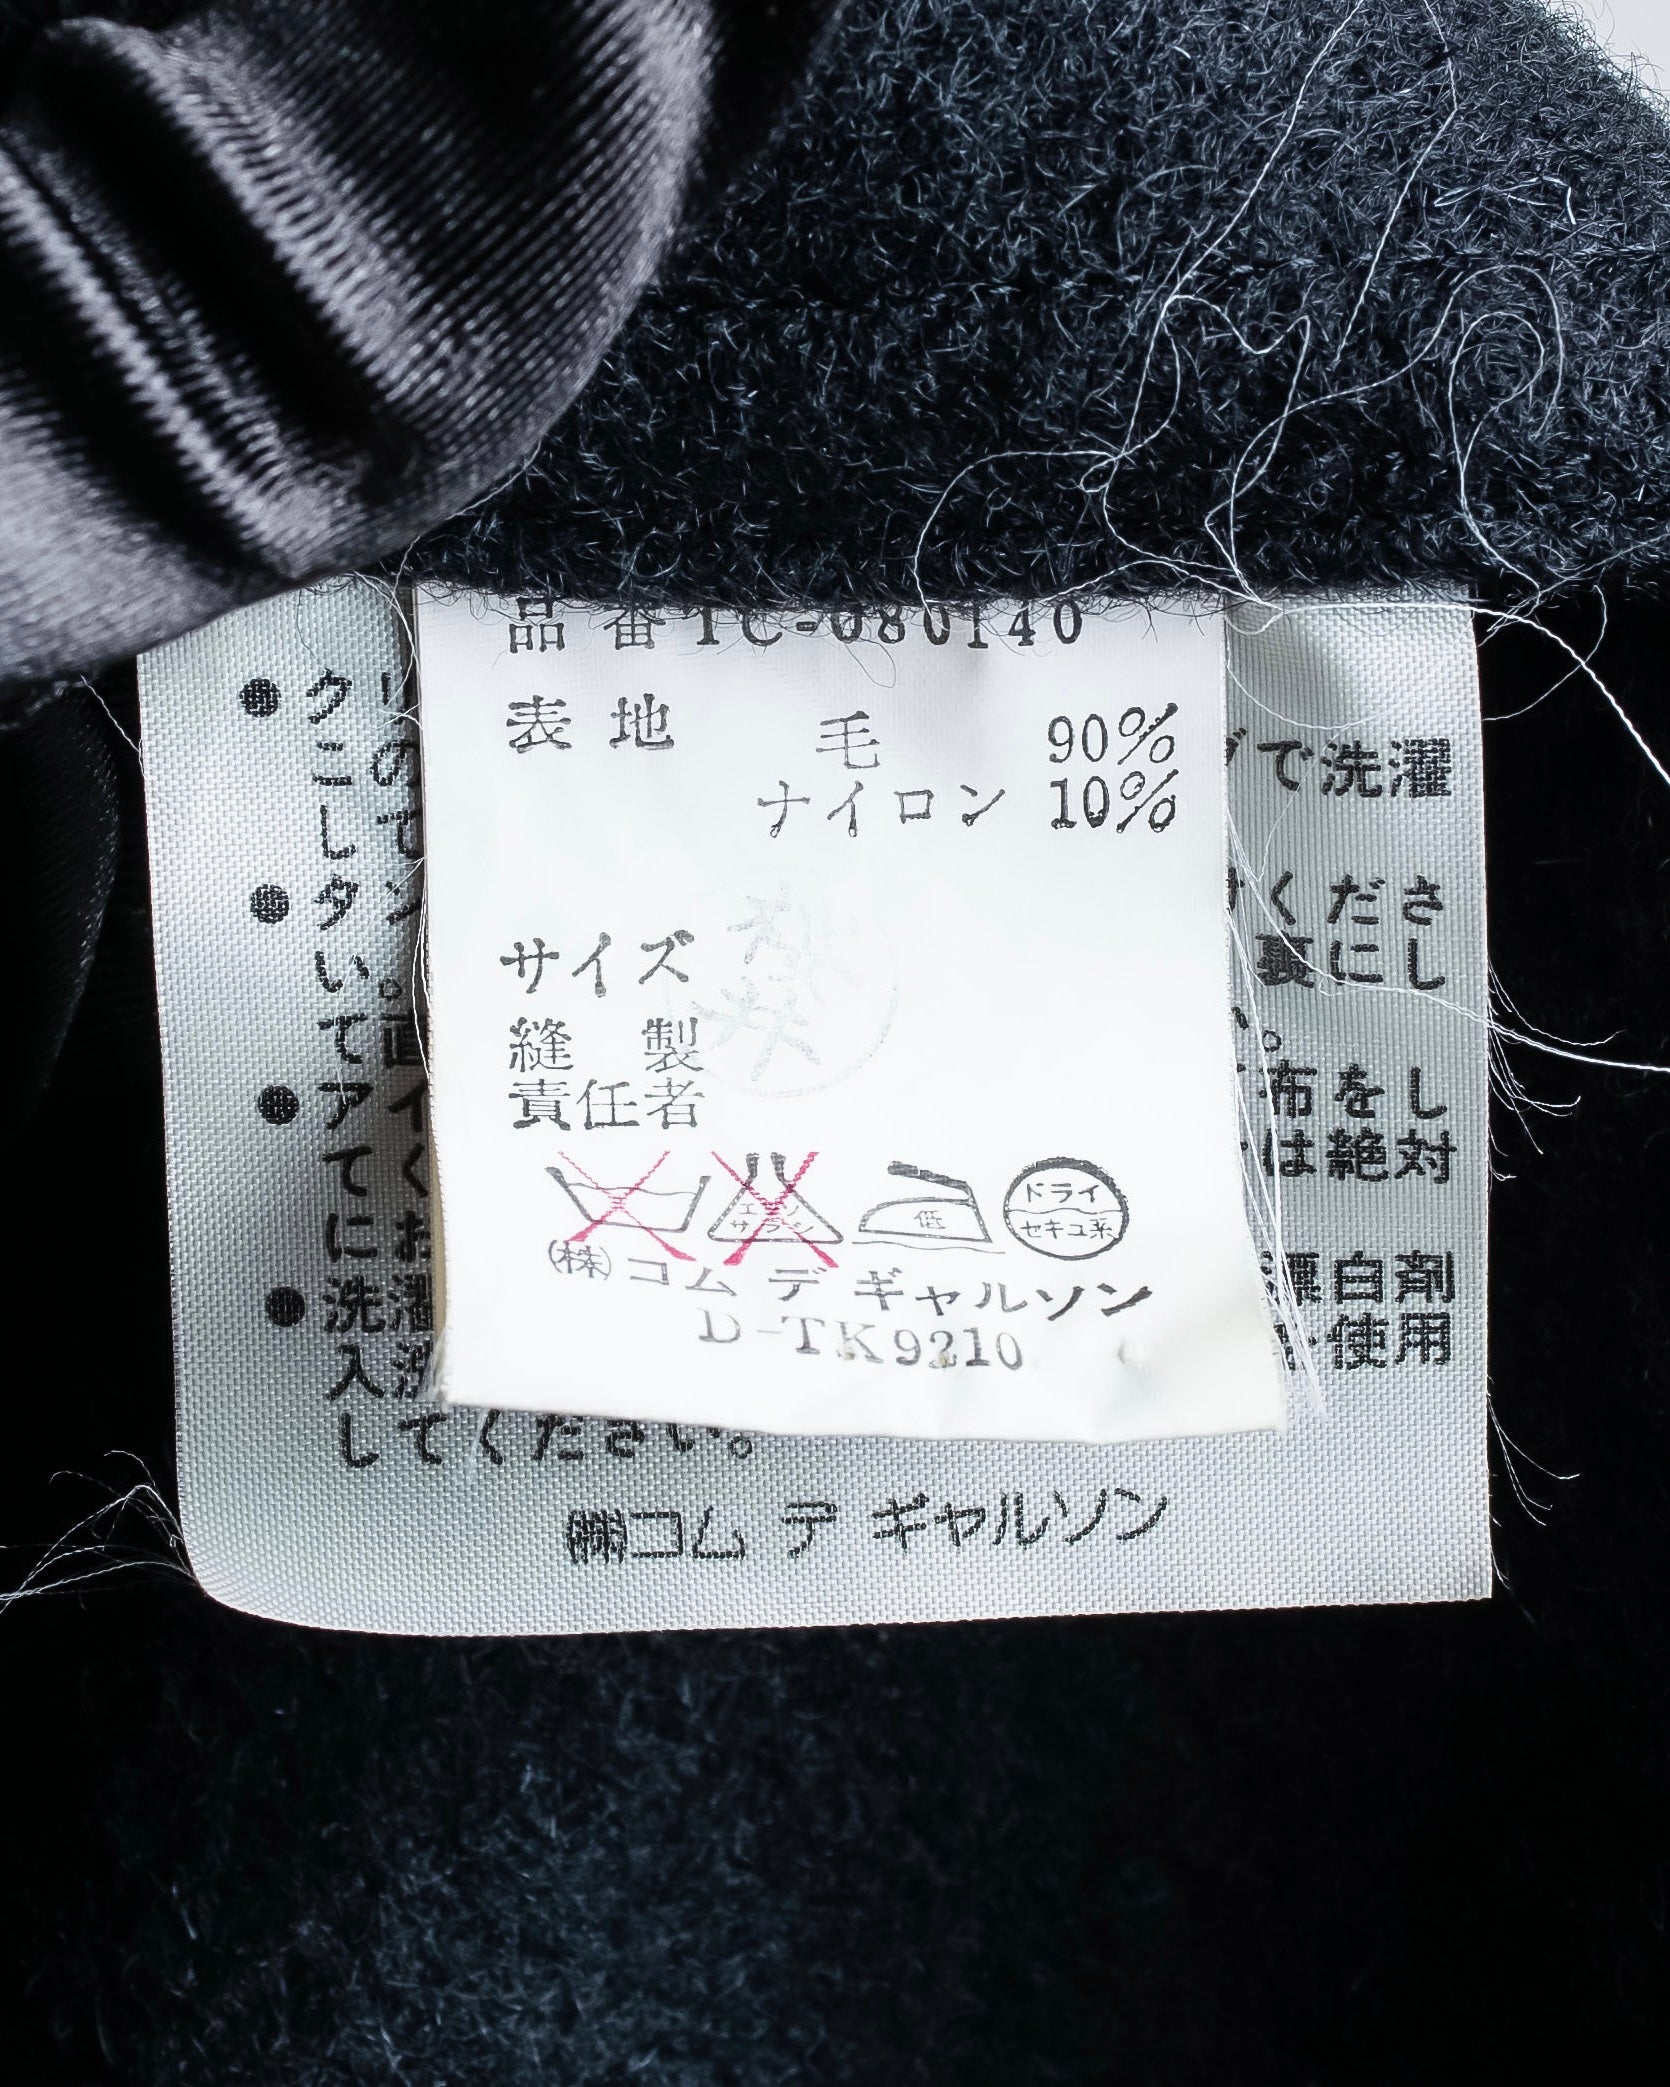 品番 TC-080140
表地 毛 90%
ナイロン 10%
サイズ
縫製
責任者
エンソ
サラシ
低
ドライ
セキユ系
(株)コム デ ギャルソン
D-TK9210
●クリ で洗濯
この
して
●タン くださ
い。 裏にし
て直 い。
●アイ 布をし
てく は絶対
にお
●洗濯 漂白剤
入洗 使用
してください。
(株)コム デ ギャルソン